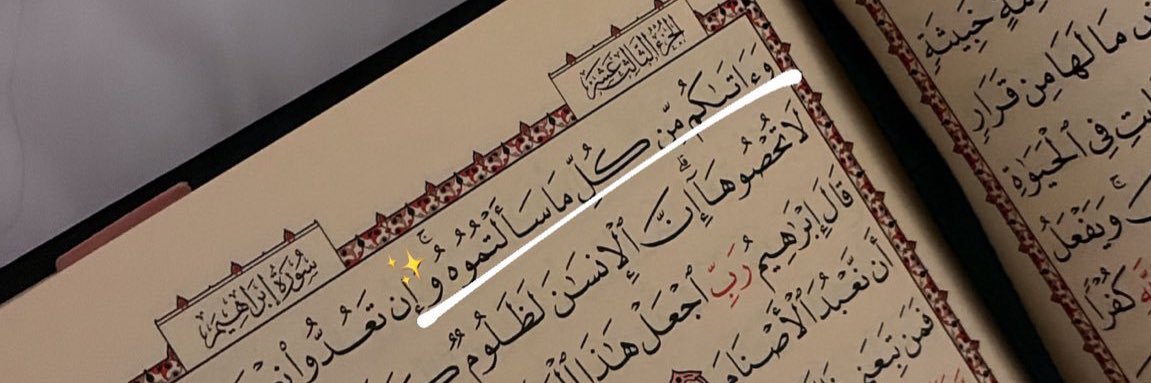 الجزء الثالث عشر
سورة إبراهيم
وَءَاتَىٰكُم مِّن كُلِّ مَا سَأَلْتُمُوهُ ۚ وَإِن تَعُدُّوا۟
لَا تُحْصُوهَآ ۗ إِنَّ ٱلْإِنسَـٰنَ لَظَلُومٌ
قَالَ إِبْرَٰهِيمُ رَبِّ ٱجْعَلْ هَـٰذَا
أَن نَّعْبُدَ ٱلْأَصْنَامَ
فَمَن تَبِعَنِى
خَبِيثَةٍ
مَا لَهَا مِن قَرَارٍ
فِى ٱلْحَيَوٰةِ
وَيَفْعَلُ
كُفْرًا